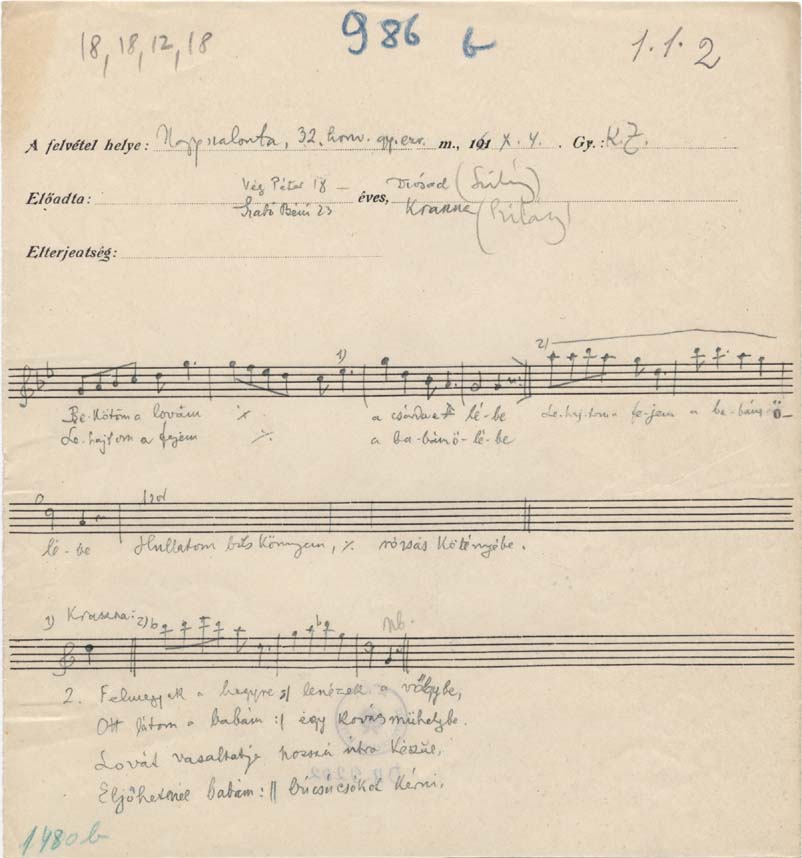 18, 18, 12, 18 986 b 1.1.2
A felvétel helye: Nagyszalonta, 32. honv. gy. ezr. m., 191 X. 4. Gy.: K.Z.
Előadta: Vég Péter 18 — éves, Diósad (Szilágy)
Szabó Béni 23 Kraszna (Szilágy)
Elterjeatség:
1) 2)
Be-kötöm a lovam ٪ a csárda elé lé-be Le-haj-tom a fe-jem a ba-bám ö-
Le-hajtom a fejem ٪ a ba-bám ö-lé-be
lé-be Hullatom bús könnyem, ٪ rózsás kötényébe.
1) Kraszna: 2) Nb.
2. Felmegyek a hegyre :/ lenézek a völgybe,
Ott látom a babám :/ egy kovásműhelybe.
Lovát vasaltatja hosszú útra készül,
Eljöhetnél babám :|| búcsúcsókot kérni.
1480 b